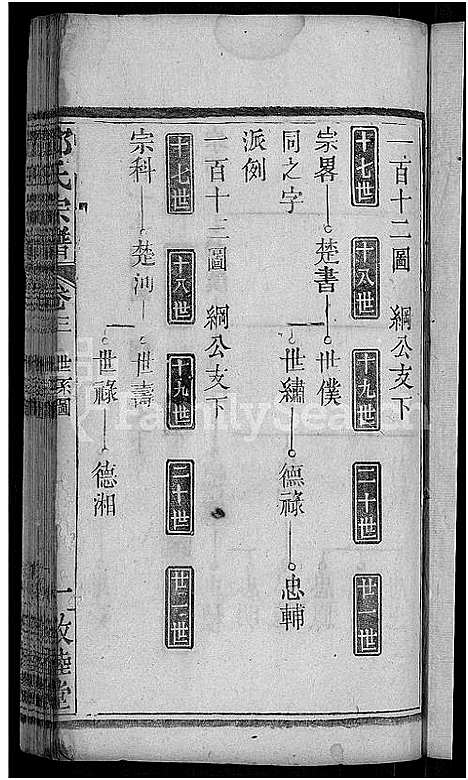 一百十二圖 綱公支下
十七世 十八世 十九世 二十世 廿一世
宗畧 楚書 世僕
同之字 世繡 德祿 忠輔
派例
一百十三圖 綱公支下
十七世 十八世 十九世 二十世 廿一世
宗科 楚河 世壽
世祿 德湘
氏宗譜 卷三 世系圖 敦睦堂
FamilySearch